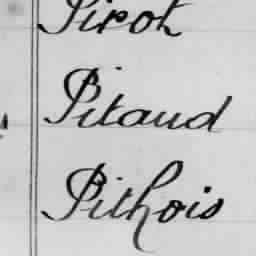 Pirot
Pitaud
Pithois